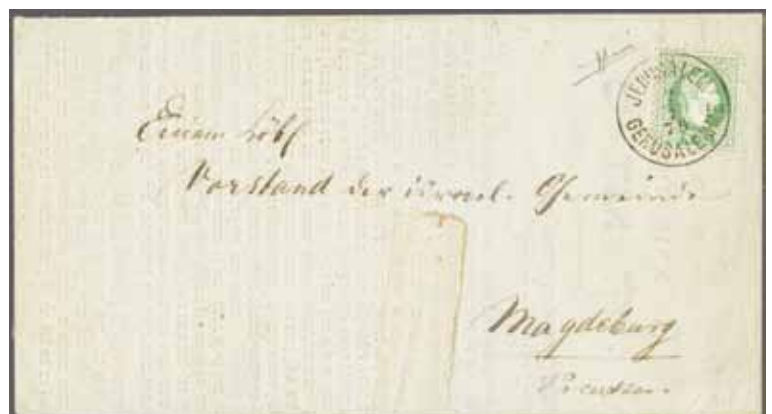 JERUSALEM
GERUSALEMME
Einem löbl.
Vorstand der israel. Gemeinde
Magdeburg
Preussen.